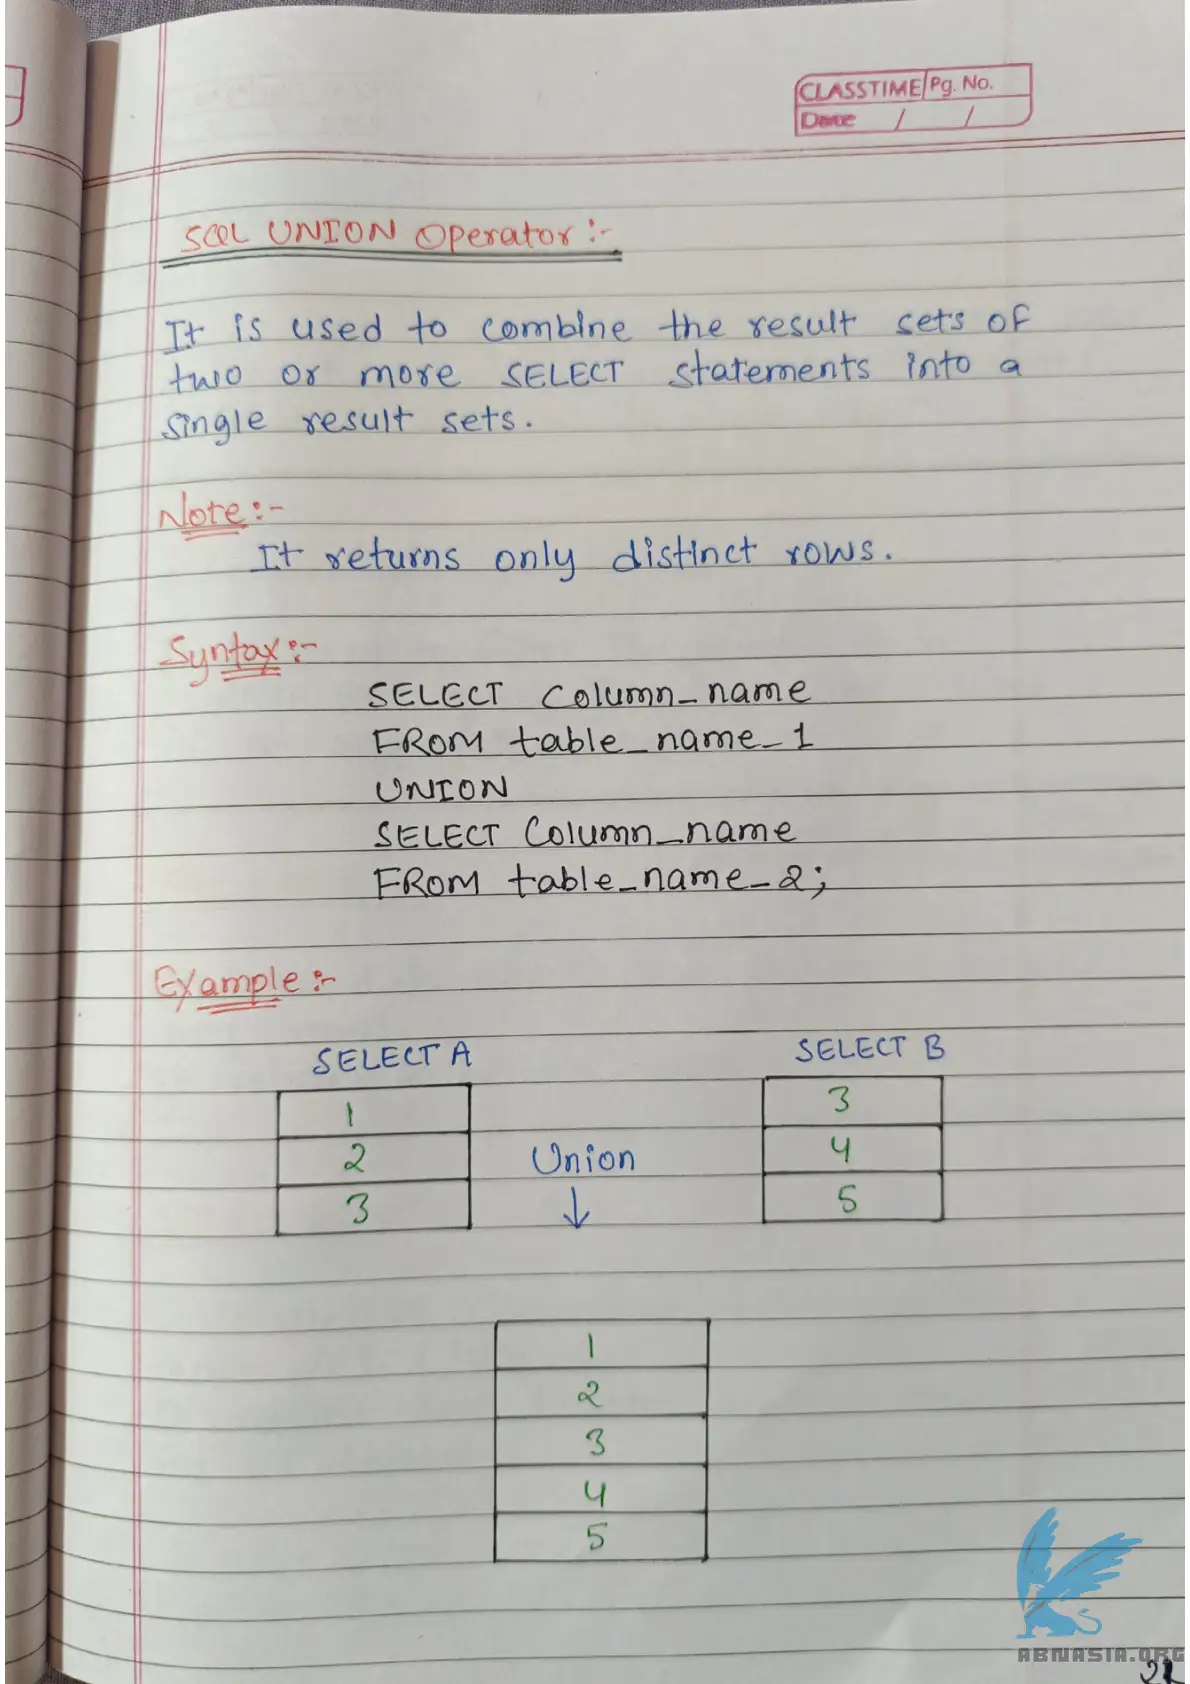 CLASSTIME Pg. No.
Date / /
SQL UNION Operator :-
It is used to combine the result sets of
two or more SELECT statements into a
single result sets.
Note :-
It returns only distinct rows.
Syntax :-
SELECT Column_name
FROM table_name_1
UNION
SELECT Column_name
FROM table_name_2;
Example :-
SELECT A SELECT B
1 3
2 Union 4
3 ↓ 5
1
2
3
4
5
ABNASIA.ORG